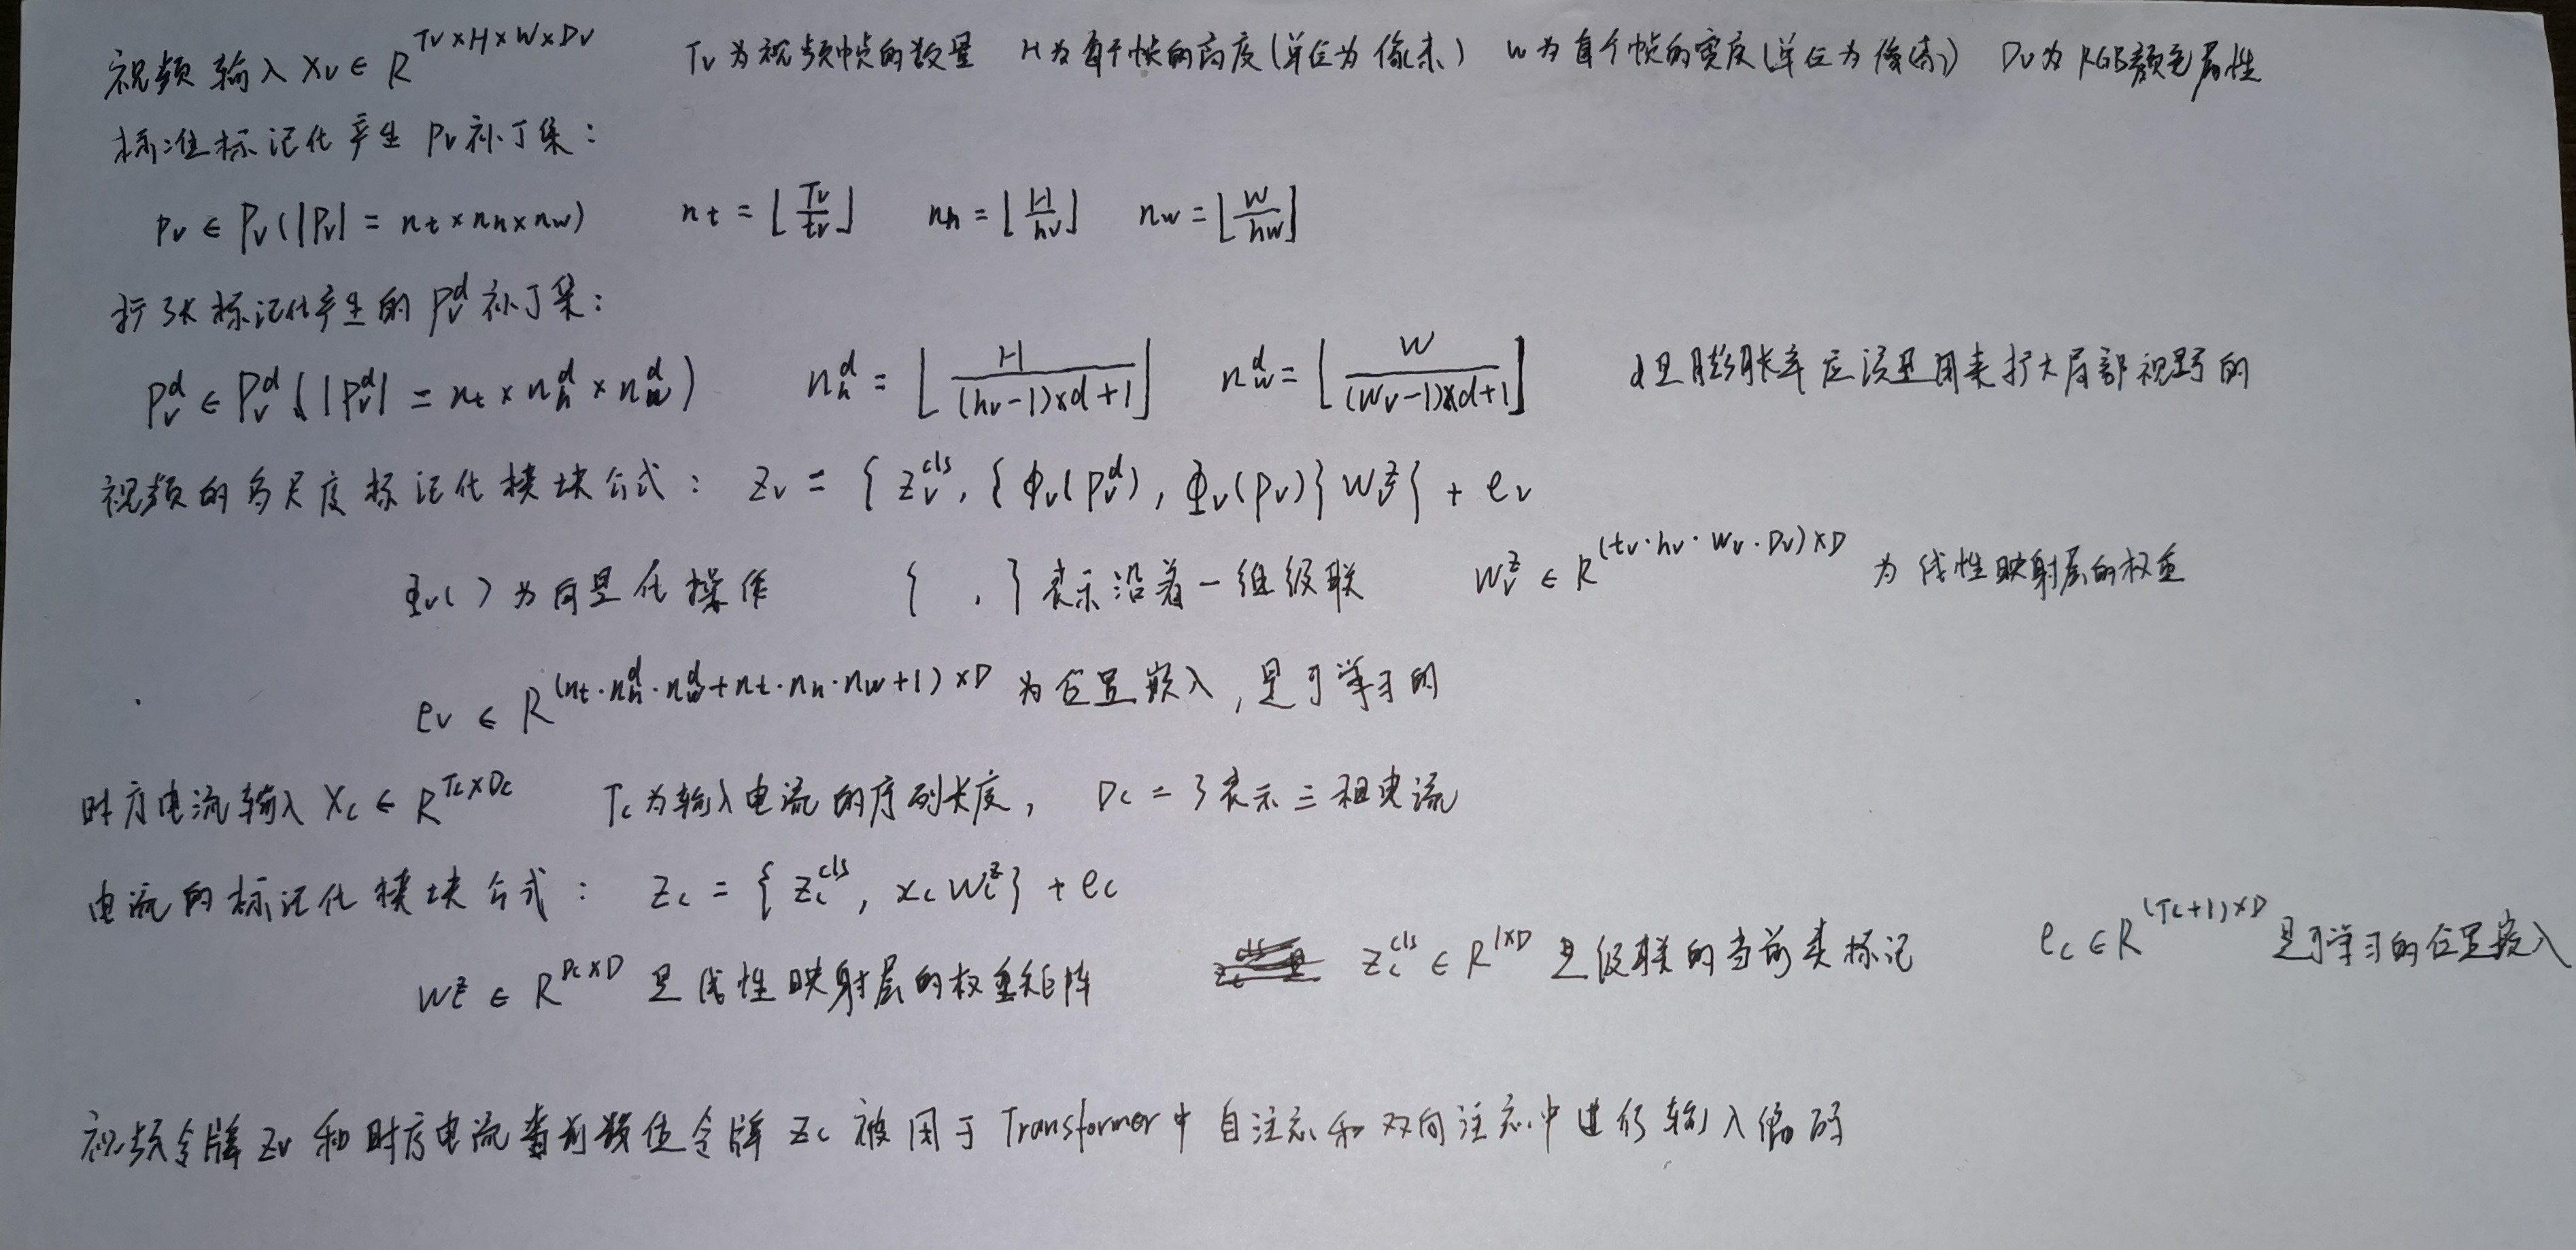 视频输入 Xv ∈ R^(Tv×H×W×Dv) Tv为视频帧的数量 H为每个帧的高度(单位为像素) W为每个帧的宽度(单位为像素) Dv为RGB颜色属性
标准标记化产生 Pv补丁集:
Pv ∈ Pv(|Pv| = nt×nh×nw) nt = ⌊Tv/tv⌋ nh = ⌊H/hv⌋ nw = ⌊W/hw⌋
扩张标记化产生的 Pv^d 补丁集:
Pv^d ∈ Pv^d (|Pv^d| = nt × nh^d × nw^d) nh^d = ⌊H/((hv-1)×d+1)⌋ nw^d = ⌊W/((Wv-1)×d+1)⌋ d是膨胀率应该是用来扩大局部视野的
视频的多尺度标记化模块公式: Zv = {Zv^cls, {Φv(Pv^d), Φv(Pv)}Wv^z} + ev
Φv( )为向量化操作 { , }表示沿着一组级联 Wv^z ∈ R^((tv·hv·Wv·Dv)×D) 为线性映射层的权重
ev ∈ R^((nt·nh^d·nw^d+nt·nh·nw+1)×D) 为位置嵌入,是可学习的
时序电流输入 Xc ∈ R^(Tc×Dc) Tc为输入电流的序列长度, Dc = 3表示三相电流
电流的标记化模块公式: Zc = {Zc^cls, xc Wc^z} + ec
Wc^z ∈ R^(Dc×D) 是线性映射层的权重矩阵 Zc^cls ∈ R^(1×D) 是级联的当前类标记 ec ∈ R^((Tc+1)×D) 是可学习的位置嵌入
视频令牌 Zv 和时序电流当前数值令牌 Zc 被用于Transformer中自注意和双向注意中进行输入编码